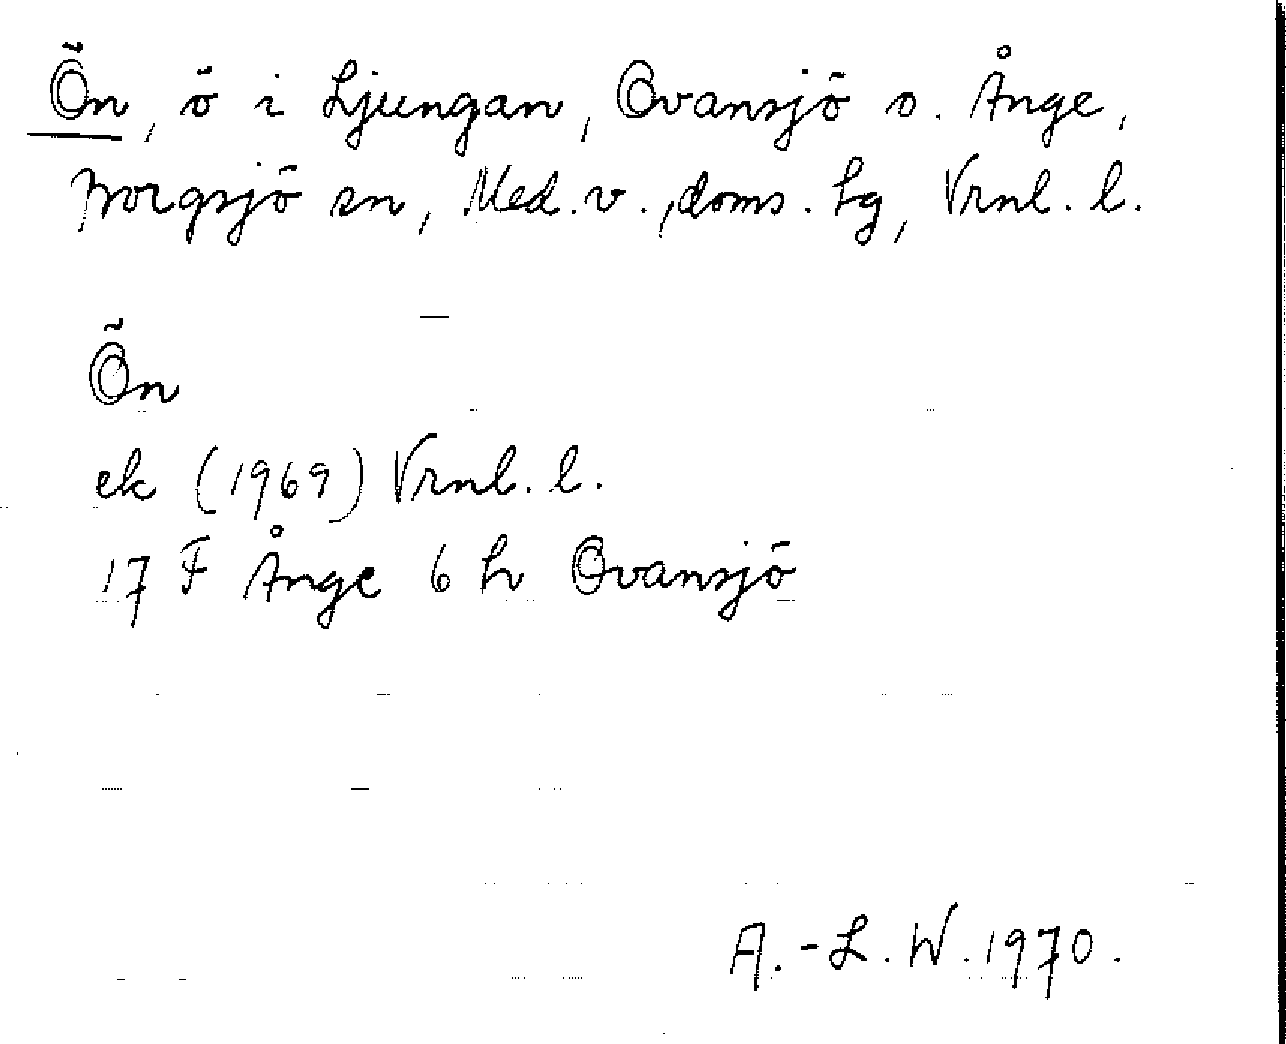 Ön, ö i Ljungan, Ovansjö o. Ånge,
Borgsjö sn, Med. v., doms. hg, Vrnl. l.
Ön
ek (1969) Vrnl. l.
17 F Ånge 6 h Ovansjö
A.-L. W. 1970.